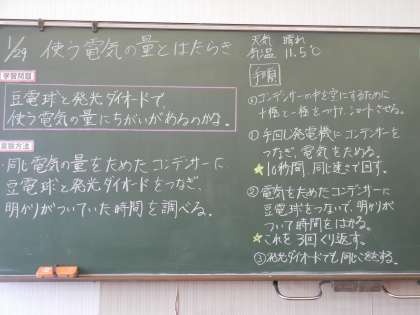 1/29 使う電気の量とはたらき
学習問題
豆電球と発光ダイオードで、
使う電気の量にちがいがあるのかな。
実験方法
・同じ電気の量をためたコンデンサーに
豆電球と発光ダイオードをつなぎ、
明かりがついていた時間を調べる。
天気 晴れ
気温 11.5℃
手順
⓪コンデンサーの中を空にするために
+極と-極をつけ、ショートさせる。
①手回し発電機にコンデンサーを
つなぎ、電気をためる。
★10秒間、同じ速さで回す。
②電気をためたコンデンサーに
豆電球をつないで、明かりが
ついて時間をはかる。
★これを3回くり返す。
③発光ダイオードでも同じ